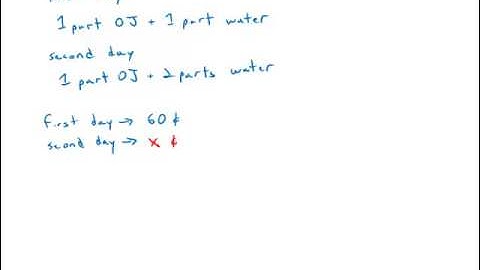 1 part OJ + 1 part water
second day
1 part OJ + 2 parts water
first day → 60 ¢
second day → x ¢